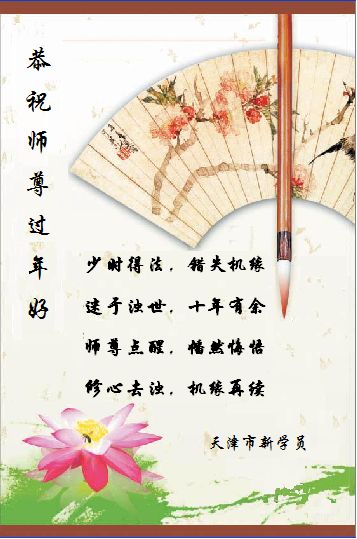 恭祝师尊过年好
少时得法，错失机缘
迷于浊世，十年有余
师尊点醒，幡然悔悟
修心去浊，机缘再续
天津市新学员